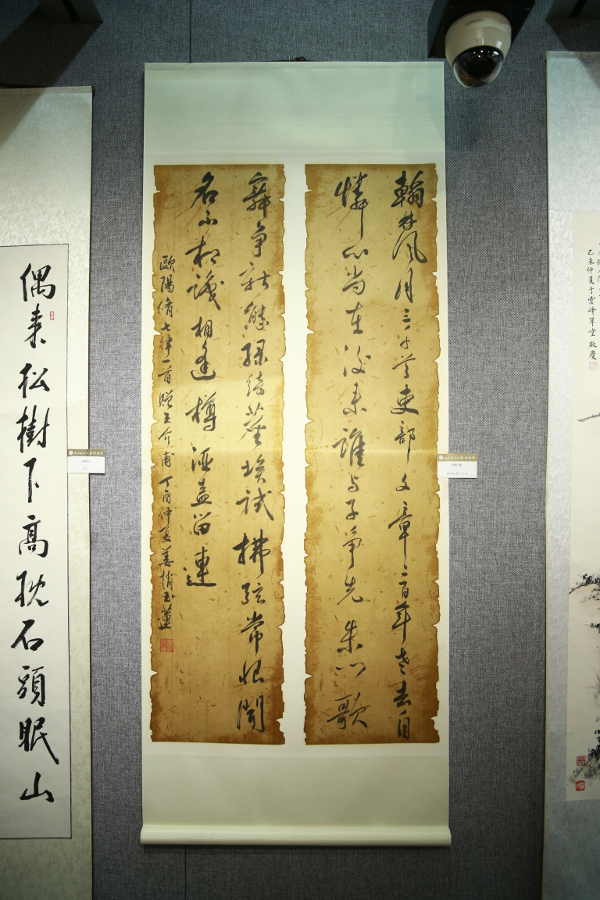 乙未仲夏于雲峰草堂
翰林風月三千首吏部文章二百年老去自
憐心尚在後来誰与子争先朱门歌
舞争新態绿绮塵埃試拂弦常恨聞
名不相識相逢樽酒盍留連
歐陽脩七律一首贈王介甫 丁酉仲夏姜
偶来松樹下高枕石頭眠山